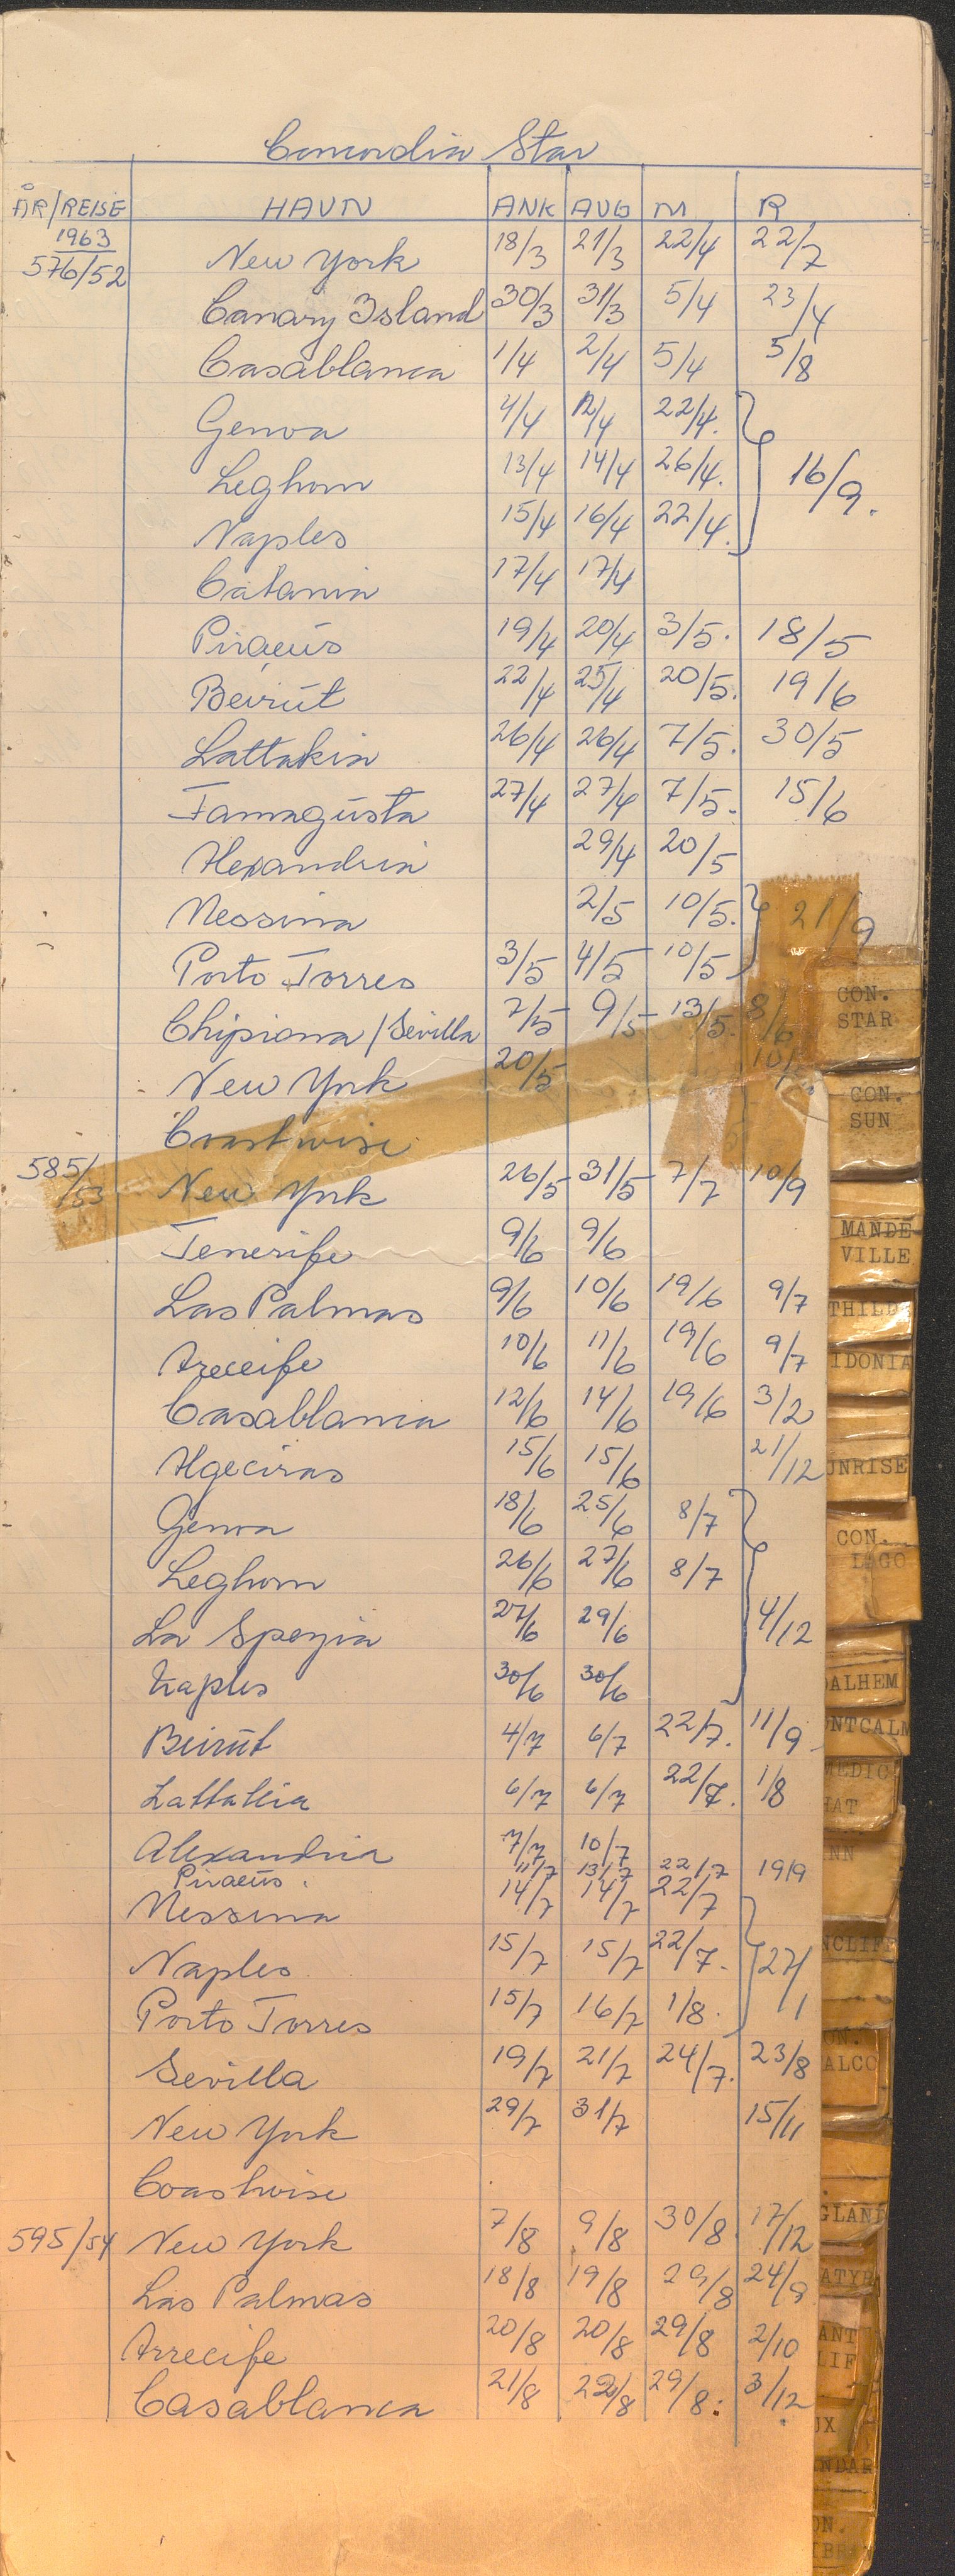 Concordia Star
ÅR/REISE HAVN ANK AVG M R
1963
576/52 New York 18/3 21/3 22/4 22/7
Canary Island 30/3 31/3 5/4 23/4
Casablanca 1/4 2/4 5/4 5/8
Genoa 4/4 12/4 22/4.
Leghorn 13/4 14/4 26/4. 16/9.
Naples 15/4 16/4 22/4.
Catania 17/4 17/4
Piraeus 19/4 20/4 3/5. 18/5
Beirut 22/4 25/4 20/5. 19/6
Lattakia 26/4 26/4 7/5. 30/5
Famagusta 27/4 27/4 7/5. 15/6
Alexandria 29/4 20/5
Messina 2/5 10/5. 21/9
Porto Torres 3/5 4/5 10/5
Chipiona/Sevilla 7/5 9/5 13/5. 8/6
New York 20/5
Coastwise
585/53 New York 26/5 31/5 7/7 10/9
Tenerife 9/6 9/6
Las Palmas 9/6 10/6 19/6 9/7
Arrecife 10/6 11/6 19/6 9/7
Casablanca 12/6 14/6 19/6 3/2
Algeciras 15/6 15/6 21/12
Genoa 18/6 25/6 8/7
Leghorn 26/6 27/6 8/7
La Spezia 27/6 29/6 4/12
Naples 30/6 30/6
Beirut 4/7 6/7 22/7. 11/9
Lattakia 6/7 6/7 22/7. 1/8
Alexandria 7/7 10/7
Piraeus. 11/7 13/7 22/7 19/9
Messina 14/7 14/7 22/7
Naples 15/7 15/7 22/7. 27/1
Porto Torres 15/7 16/7 1/8.
Sevilla 19/7 21/7 24/7. 23/8
New York 29/7 31/7 15/11
Coastwise
595/54 New York 7/8 9/8 30/8 17/12
Las Palmas 18/8 19/8 29/8 24/9
Arrecife 20/8 20/8 29/8 2/10
Casablanca 21/8 22/8 29/8. 3/12
CON.
STAR
CON.
SUN
MANDE
VILLE
THILD
IDONIA
UNRISE
CON.
LAGO
DALHEM
ONTCALM
MEDIC
HAT
NN
NCLIFF
ON.
ALCO
GLAND
ATYR
ANT
LIF
UX
ANDAR
ON.